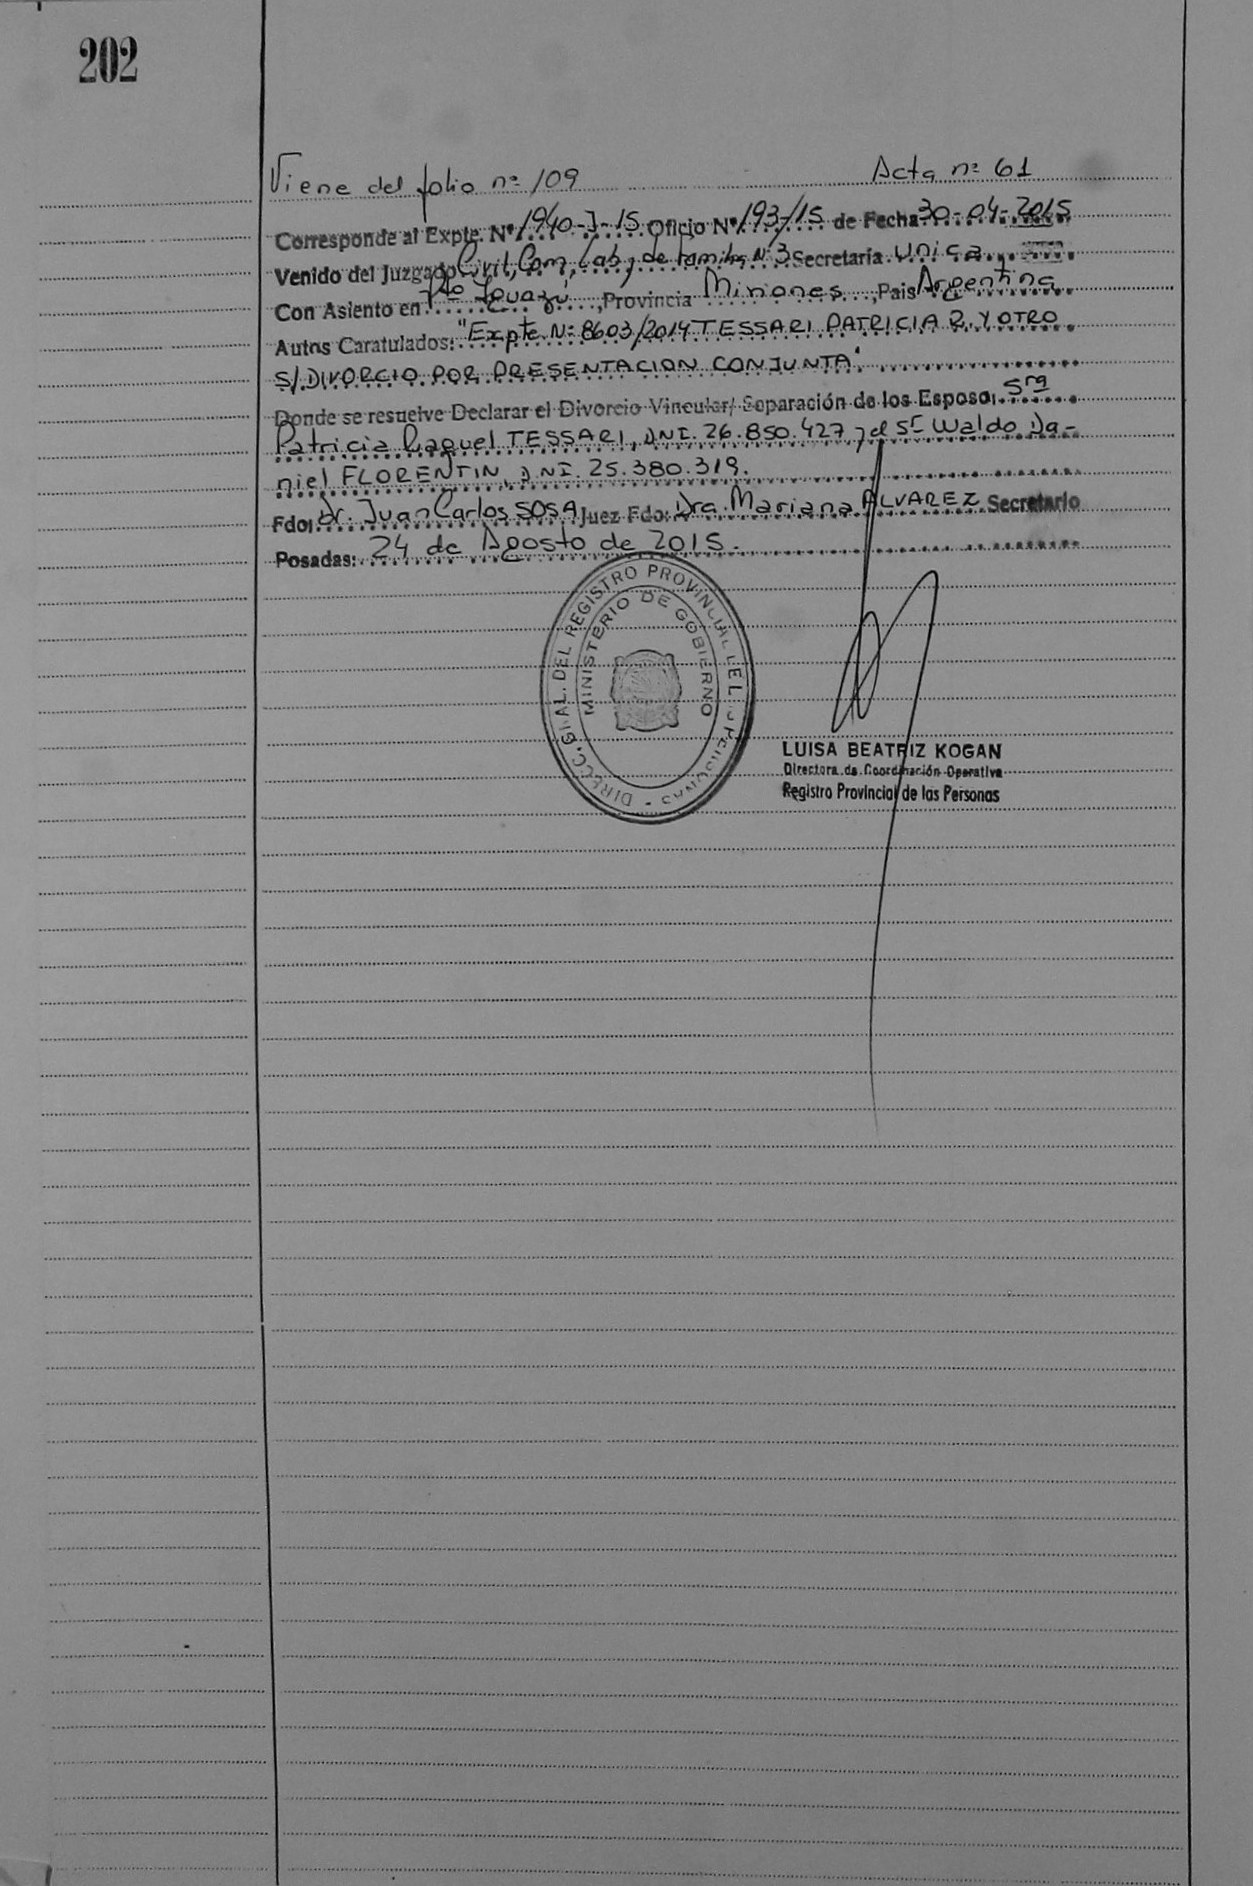 202
Viene del folio nº 109 Acta nº 61
Corresponde al Expte. Nº 1940-J-15 Oficio Nº 193/15 de Fecha 30-04-2015
Venido del Juzgado Civil, Com, Lab, y de Familia Nº 3 Secretaría Unica
Con Asiento en Pto Iguazú, Provincia Misiones, Pais Argentina
Autos Caratulados: "Expte Nº 8603/2014 TESSARI PATRICIA R. Y OTRO
S/ DIVORCIO POR PRESENTACION CONJUNTA"
Donde se resuelve Declarar el Divorcio Vincular/ Separación de los Esposo: Sra
Patricia Raquel TESSARI, DNI. 26.850.427 y el Sr Waldo Da-
niel FLORENTIN, DNI. 25.380.319.
Fdo: Dr. Juan Carlos SOSA Juez Fdo: Dra. Mariana ALVAREZ Secretario
Posadas: 24 de Agosto de 2015.
DIRECC. GRAL. DEL REGISTRO PROVINCIAL DE LAS PERSONAS -
MINISTERIO DE GOBIERNO
LUISA BEATRIZ KOGAN
Directora de Coordinación Operativa
Registro Provincial de las Personas